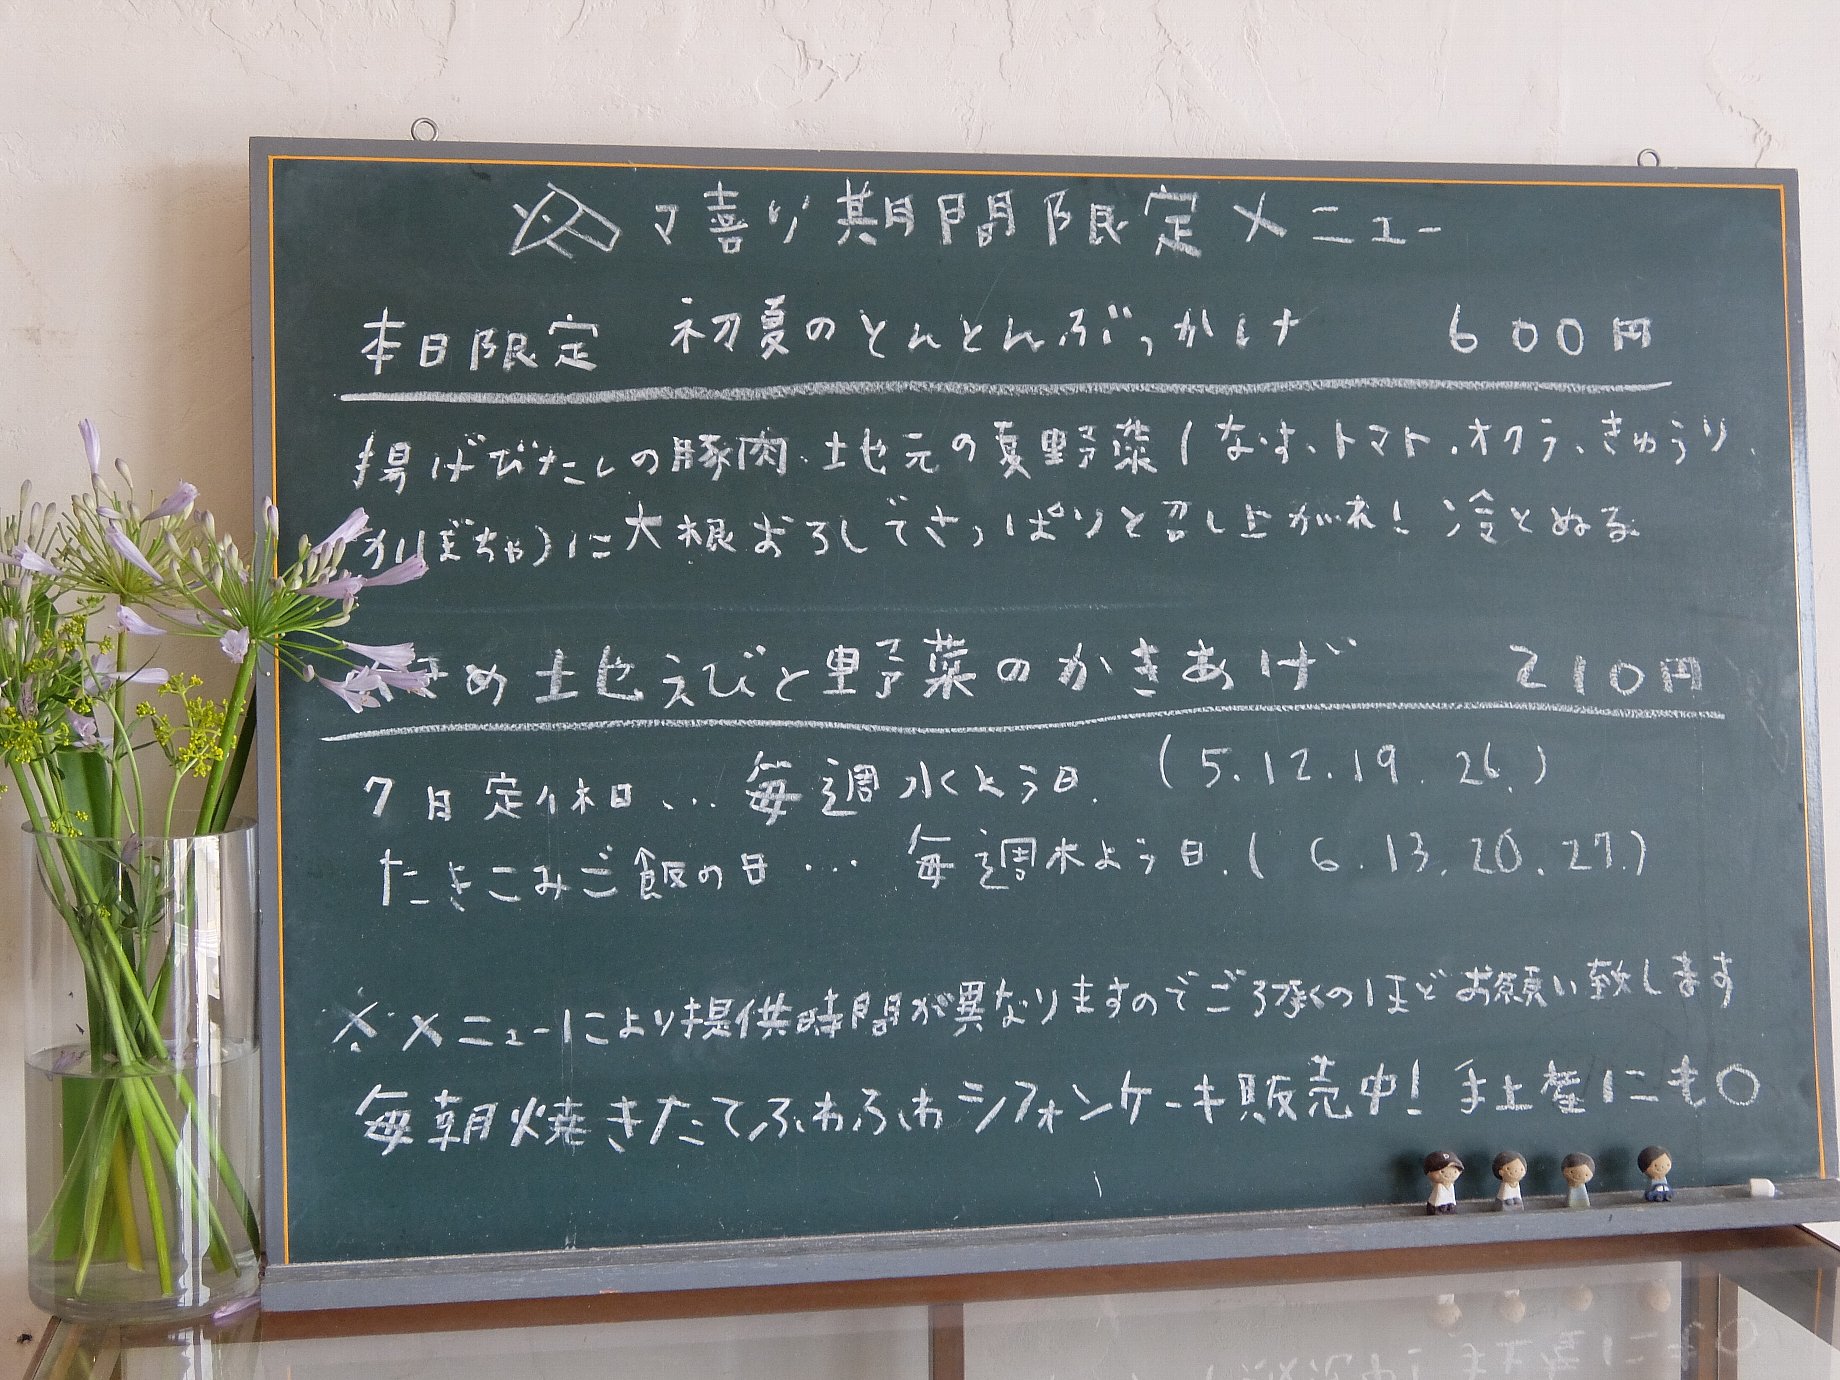 マ喜り期間限定メニュー
本日限定 初夏のとんとんぶっかけ 600円
揚げびたしの豚肉、地元の夏野菜(なす、トマト、オクラ、きゅうり、
かぼちゃ)に大根おろしでさっぱりと召し上がれ! 冷とぬる
め 地えびと野菜のかきあげ 210円
7月定休日... 毎週水よう日. (5.12.19.26.)
たきこみご飯の日... 毎週木よう日.(6.13.20.27.)
※メニューにより提供時間が異なりますのでご了承くのほどお願い致します
毎朝焼きたてふわふわシフォンケーキ販売中! 手土産にも〇